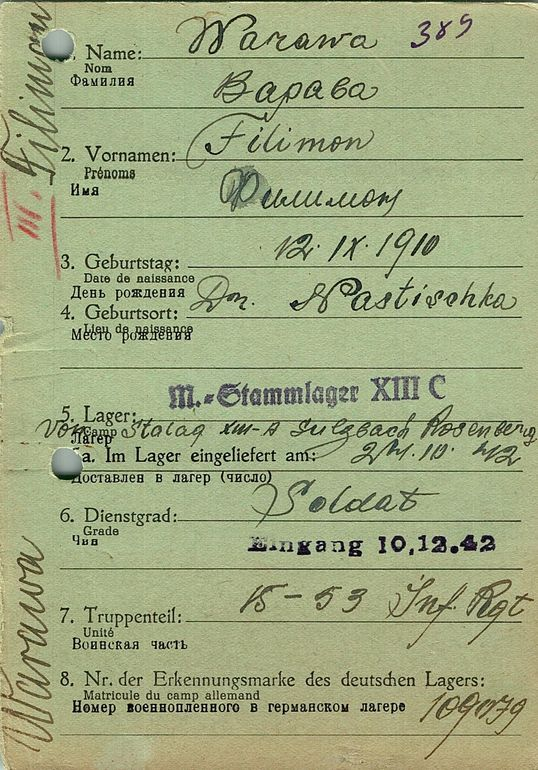 Warawa 389
1. Name:
Nom
Фамилия
Варава
Filimon
2. Vornamen:
Prénoms
Имя
Филимон
12. IX. 1910
3. Geburtstag:
Date de naissance
День рождения
Nastischka
4. Geburtsort:
Lieu de naissance
Место рождения
M.-Stammlager XIII C
5. Lager:
Camp
Лагерь
von Stalag XIII-A Sulzbach Rosenberg
5a. Im Lager eingeliefert am: 24.10.42
Доставлен в лагерь (число)
Soldat
6. Dienstgrad:
Grade
Чин
Eingang 10.12.42
15-53 Inf. Rgt
7. Truppenteil:
Unité
Воинская часть
8. Nr. der Erkennungsmarke des deutschen Lagers:
Matricule du camp allemand
Номер военнопленного в германском лагере
Filimon
III.
Warawa